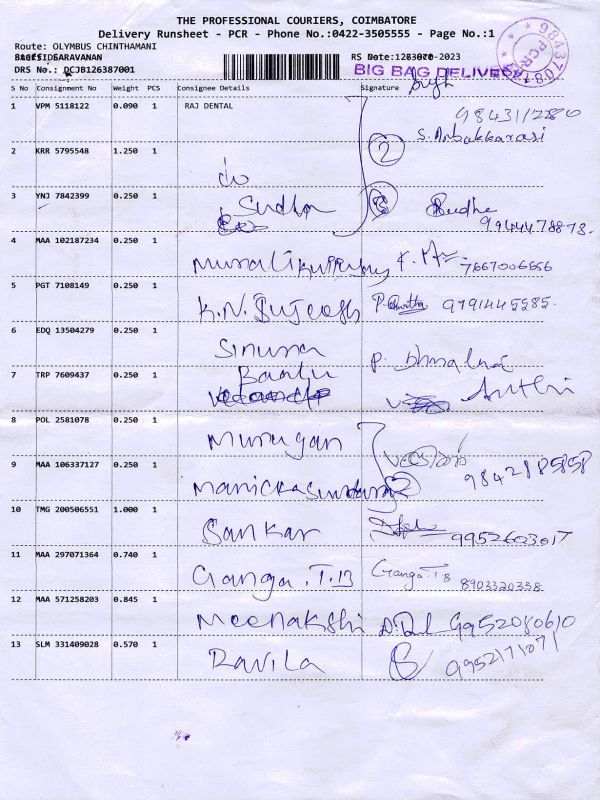 THE PROFESSIONAL COURIERS, COIMBATORE
Delivery Runsheet - PCR - Phone No.:0422-3505555 - Page No.:1
Route: OLYMBUS CHINTHAMANI
SARAVANAN
RS Date: -2023
DRS No.: DCJB126387001
BIG BAG DELIVERY
S No Consignment No Weight PCS Consignee Details Signature
1 VPM 5118122 0.090 1 RAJ DENTAL
S. Anbakkarasi
2 KRR 5795548 1.250 1 do 2
3 YNJ 7842399 0.250 1 Sudha Sudha
9944478873.
4 MAA 102187234 0.250 1 7667006656
5 PGT 7108149 0.250 1 K.N. 9791445985.
6 EDQ 13504279 0.250 1
7 TRP 7609437 0.250 1
8 POL 2581078 0.250 1 Murugan
9 MAA 106337127 0.250 1 Manickasundaram 2 9842185858
10 TMG 200506551 1.000 1 Sankar 9952603017
11 MAA 297071364 0.740 1 Ganga.T.B Ganga.T.B 8903320338
12 MAA 571258203 0.845 1 Meenakshi 9952080610
13 SLM 331409028 0.570 1 Ravila 9952171071